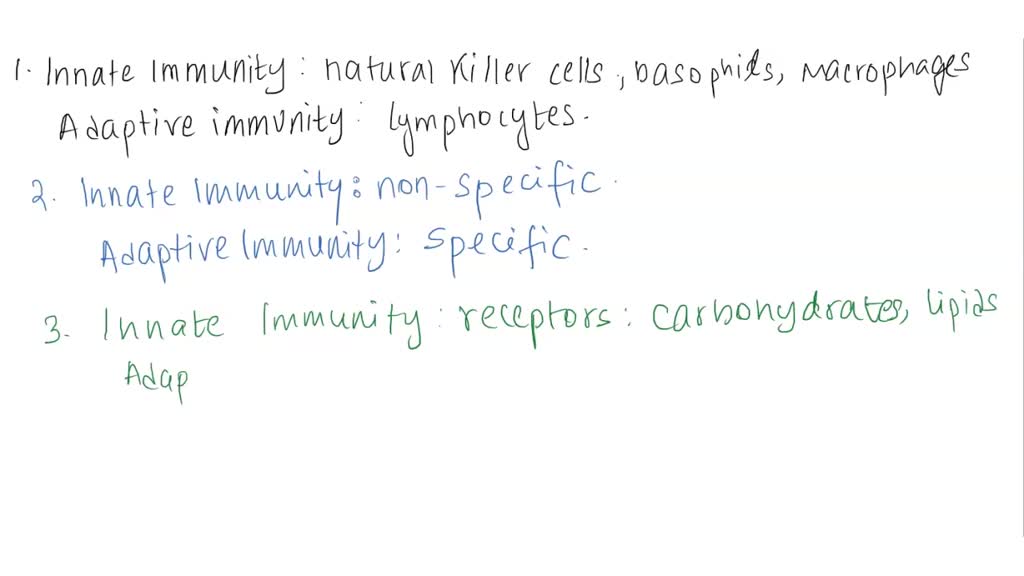 1. Innate Immunity: natural killer cells, basophils, macrophages
Adaptive immunity: lymphocytes.
2. Innate Immunity: non-specific.
Adaptive Immunity: specific.
3. Innate Immunity: receptors: carbohydrates, lipids
Adap